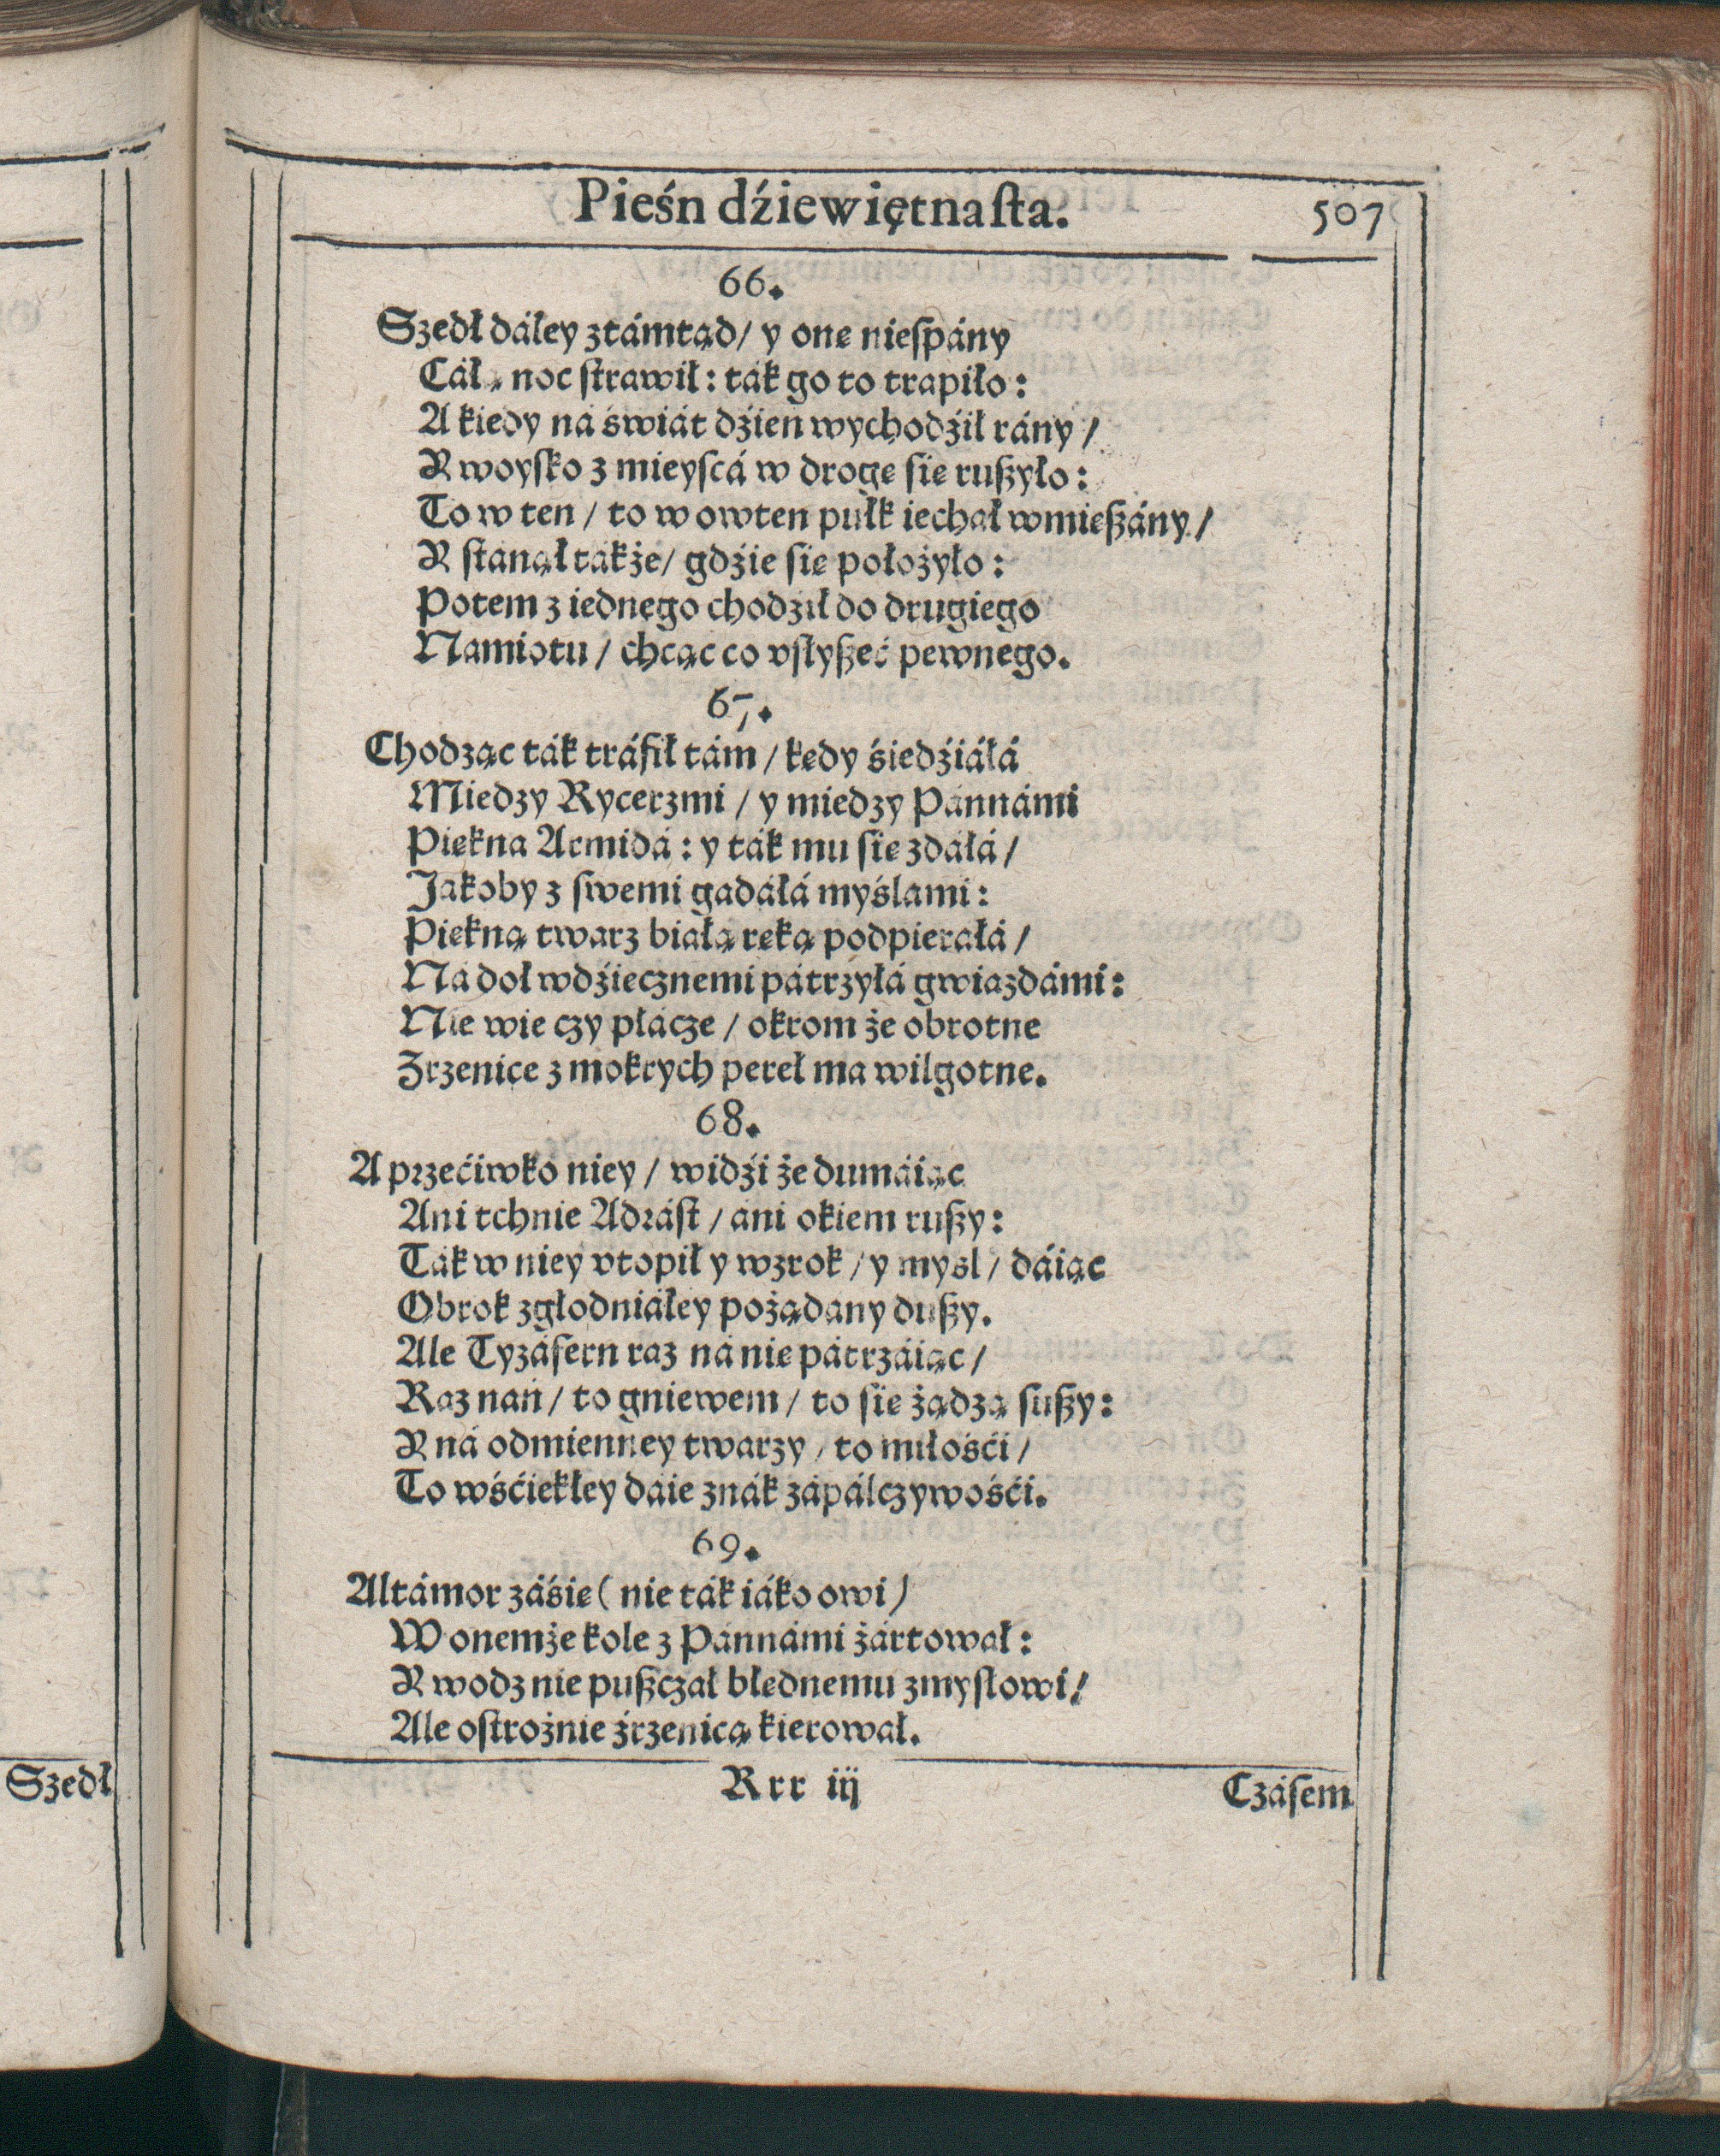 Pieśn dźiewiętnasta. 507
66.
Szedł dáley ztámtąd/ y one niespány
Cáłą noc strawił: ták go to trapiło:
A kiedy ná świát dźień wychodźił rány/
Y woysko z mieyscá w drogę się rußyło:
To w ten/ to w owten pułk iechał wmießány/
Y stanął tákże/ gdźie się położyło:
Potem z iednego chodźił do drugiego
Namiotu/ chcąc co vsłyßeć pewnego.
67.
Chodząc ták tráfił tám/ kędy śiedźiáłá
Miedzy Rycerzmi/ y miedzy Pánnámi
Piękna Armidá: y ták mu się zdáłá/
Jakoby z swemi gadáłá myślami:
Piękną twarz białą ręką podpierałá/
Ná doł wdźięcznemi pátrzyłá gwiazdámi:
Nie wie czy płácze/ okrom że obrotne
Zrzenice z mokrych pereł ma wilgotne.
68.
A przećiwko niey/ widźi że dumáiąc
Ani tchnie Adrást/ áni okiem rußy:
Ták w niey vtopił y wzrok/ y mysl/ dáiąc
Obrok zgłodniáłey pożądany dußy.
Ale Tyzáfern raz ná nię pátrzáiąc/
Raz nań/ to gniewem/ to się żądzą sußy:
Y ná odmienney twarzy/ to miłośći/
To wśćiekłey dáie znák zápálczywośći.
69.
Altámor záśię (nie ták iáko owi)
W onemże kole z Pánnámi żártował:
Y wodz nie pußczał błędnemu zmysłowi/
Ale ostrożnie źrzenicą kierował.
Rrr iij
Czásem
Szedł